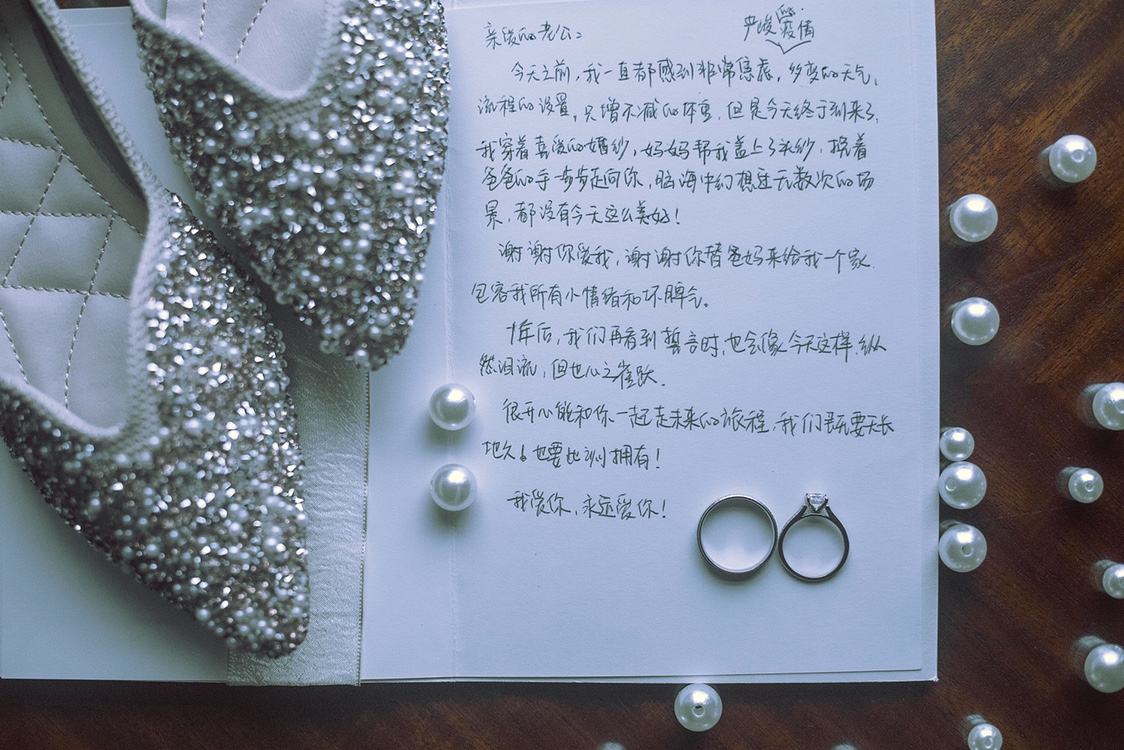 亲爱的老公:
严峻疫情
今天之前,我一直都感到非常焦虑,多变的天气,
流程的设置,只增不减的体重,但是今天终于到来了,
我穿着喜爱的婚纱,妈妈帮我盖上了头纱,挽着
爸爸的手一步步走向你,脑海中幻想过无数次的场
景,都没有今天这么美好!
谢谢你爱我,谢谢你替爸妈来给我一个家.
包容我所有小情绪和坏脾气.
十年后,我们再看到誓言时,也会像今天这样,纵
然泪流,但也心之雀跃.
很开心能和你一起走未来的旅程,我们既要天长
地久,也要拥有!
我爱你,永远爱你!